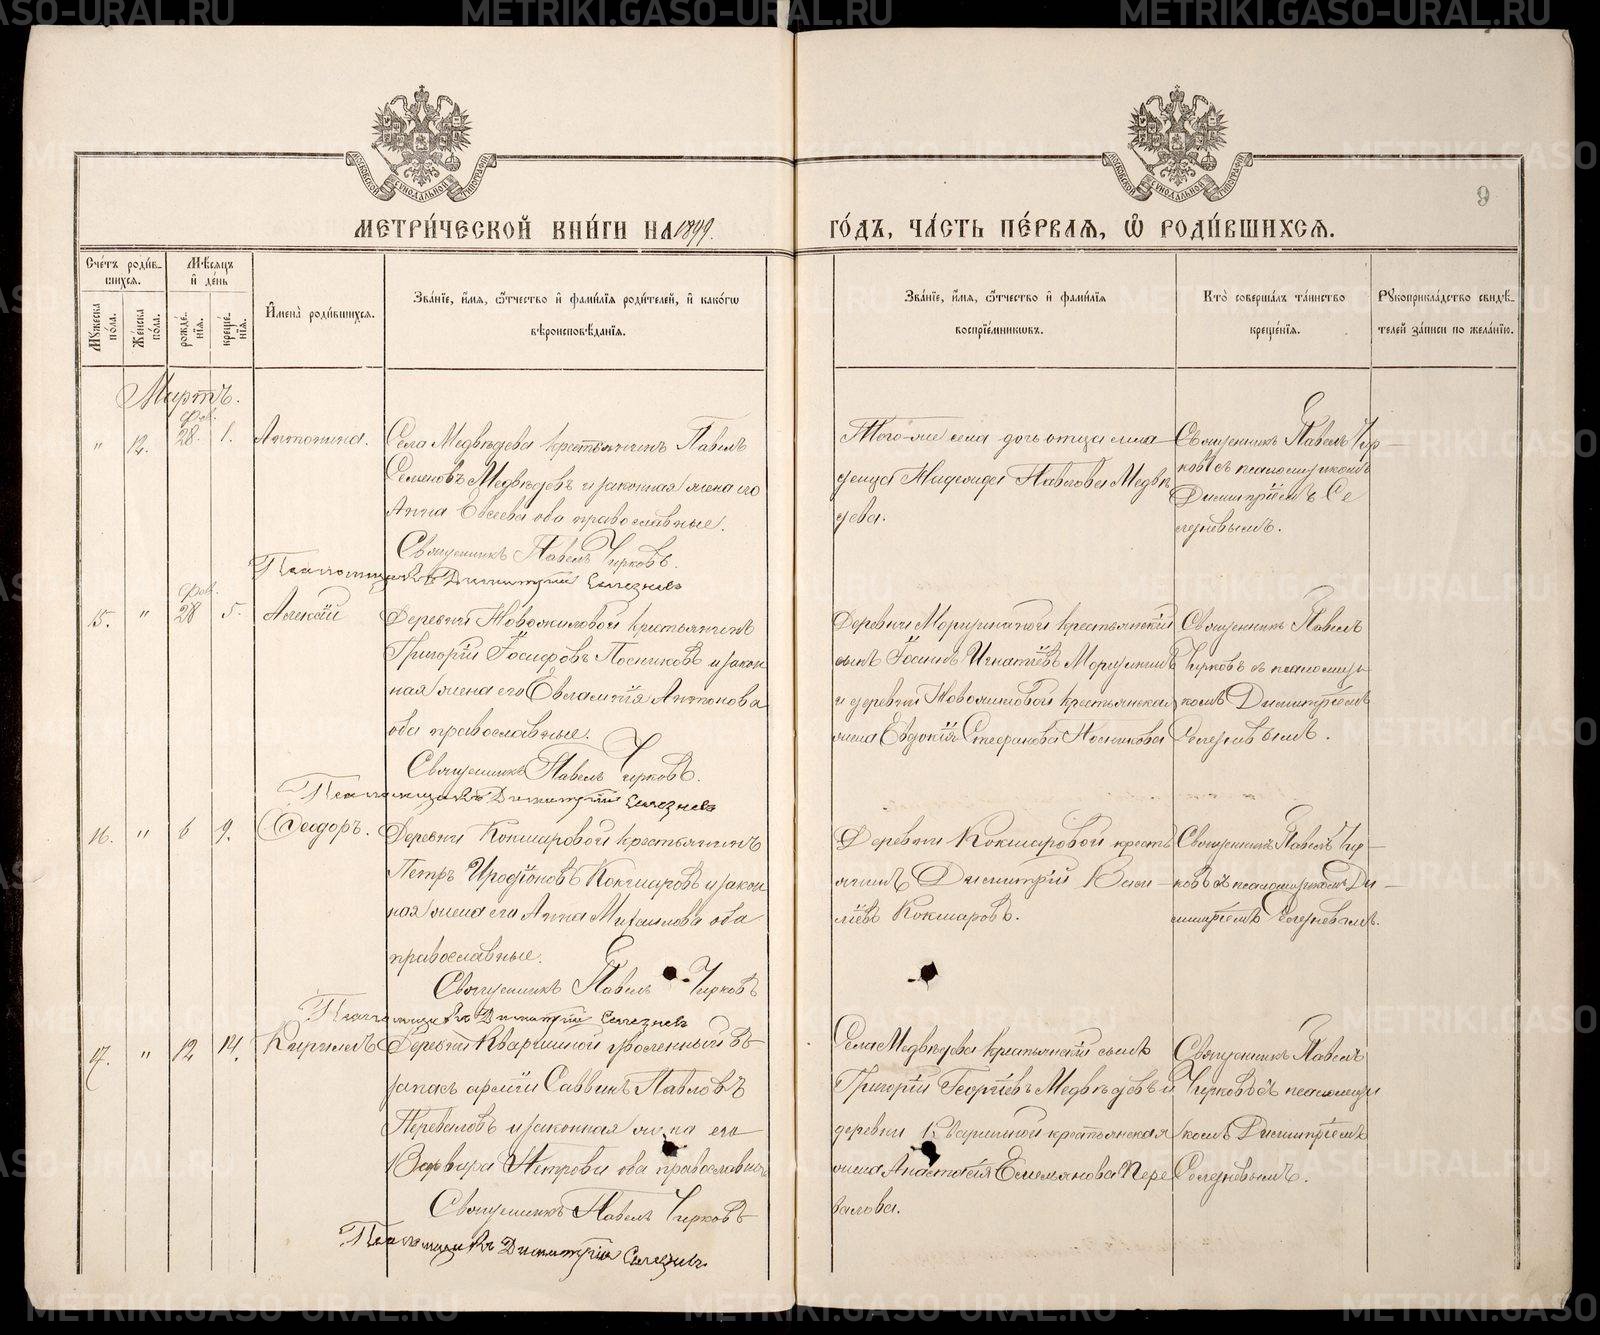 МЕТРИ́ЧЕСКОЙ КНИ́ГИ НА 1899.
ГО́ДЪ, ЧА́СТЬ ПЕ́РВАЯ, Ѡ РОДИ́ВШИХСЯ.
9
Сче́тъ роди́в-
шихся.
Мѣсяцъ
и де́нь
Мꙋжеска по́ла.
Женска по́ла.
рожде́нїѧ.
креще́нїѧ.
Имена̀ роди́вшихся.
Зва́нїе, и́мя, ѻ́тчество и фами́лїя роди́телей, и како́гѡ
вѣроисповѣ́данїя.
Зва́нїе, и́мя, ѻ́тчество и фами́лїя
воспрїе́мниковъ.
Кто̀ соверша́лъ та́инство
креще́нїя.
Рꙋкоприкла́дство свидѣ́-
телей за́писи по жела́нїю.
Мартъ.
"
12.
Фев.
28.
1.
Антонина.
Села Медвѣдева крестьянинъ Павелъ
Семеновъ Медвѣдевъ и законная жена его
Анна Евсеева оба православные.
Священникъ Павелъ Чирковъ.
Псаломщикъ Димитрий Селезневъ
Того-же села дочь отца
Павлова Медвѣ
дева.
Священникъ Павелъ Чир-
ковъ съ псаломщикомъ
Димитріемъ Се
лезневымъ.
15.
"
Фев.
28
5.
Алексѣй
Деревни Новожиловой крестьянинъ
Григорій Іосифовъ Посниковъ и закон
ная жена его Евлампія Антонова
оба православные.
Священникъ Павелъ Чирковъ.
Псаломщикъ Димитрий Селезневъ
Деревни крестьянскій
сынъ Іосифъ Игнатіевъ
и деревни Новожиловой крестьянская
жена Евдокія Стефанова Посникова
Священникъ Павелъ
Чирковъ съ псаломщи
комъ Димитріемъ
Селезневымъ.
16.
"
6
9.
Ѳеодоръ.
Деревни Кокшаровой крестьянинъ
Петръ Иродіоновъ Кокшаровъ и закон
ная жена его Анна Михаилова оба
православные.
Священникъ Павелъ Чирковъ
Псаломщикъ Димитрий Селезневъ
Деревни Кокшаровой кресть
янинъ Димитрій Васи-
ліевъ Кокшаровъ.
Священникъ Павелъ Чир-
ковъ съ псаломщикомъ Ди-
митріемъ Селезневымъ.
17.
"
12
14.
Кириллъ
Деревни Квашниной уволенный въ
запасъ арміи Саввинъ Павловъ
Переваловъ и законная жена его
Варвара Петрова оба православные
Священникъ Павелъ Чирковъ
Псаломщикъ Димитрий Селезневъ
Села Медвѣдева крестьянскій сынъ
Григорій Георгіевъ Медвѣдевъ и
деревни Квашниной крестьянская
жена Анастасія Емельянова Пере
валова.
Священникъ Павелъ
Чирковъ съ псаломщи
комъ Димитріемъ
Селезневымъ.